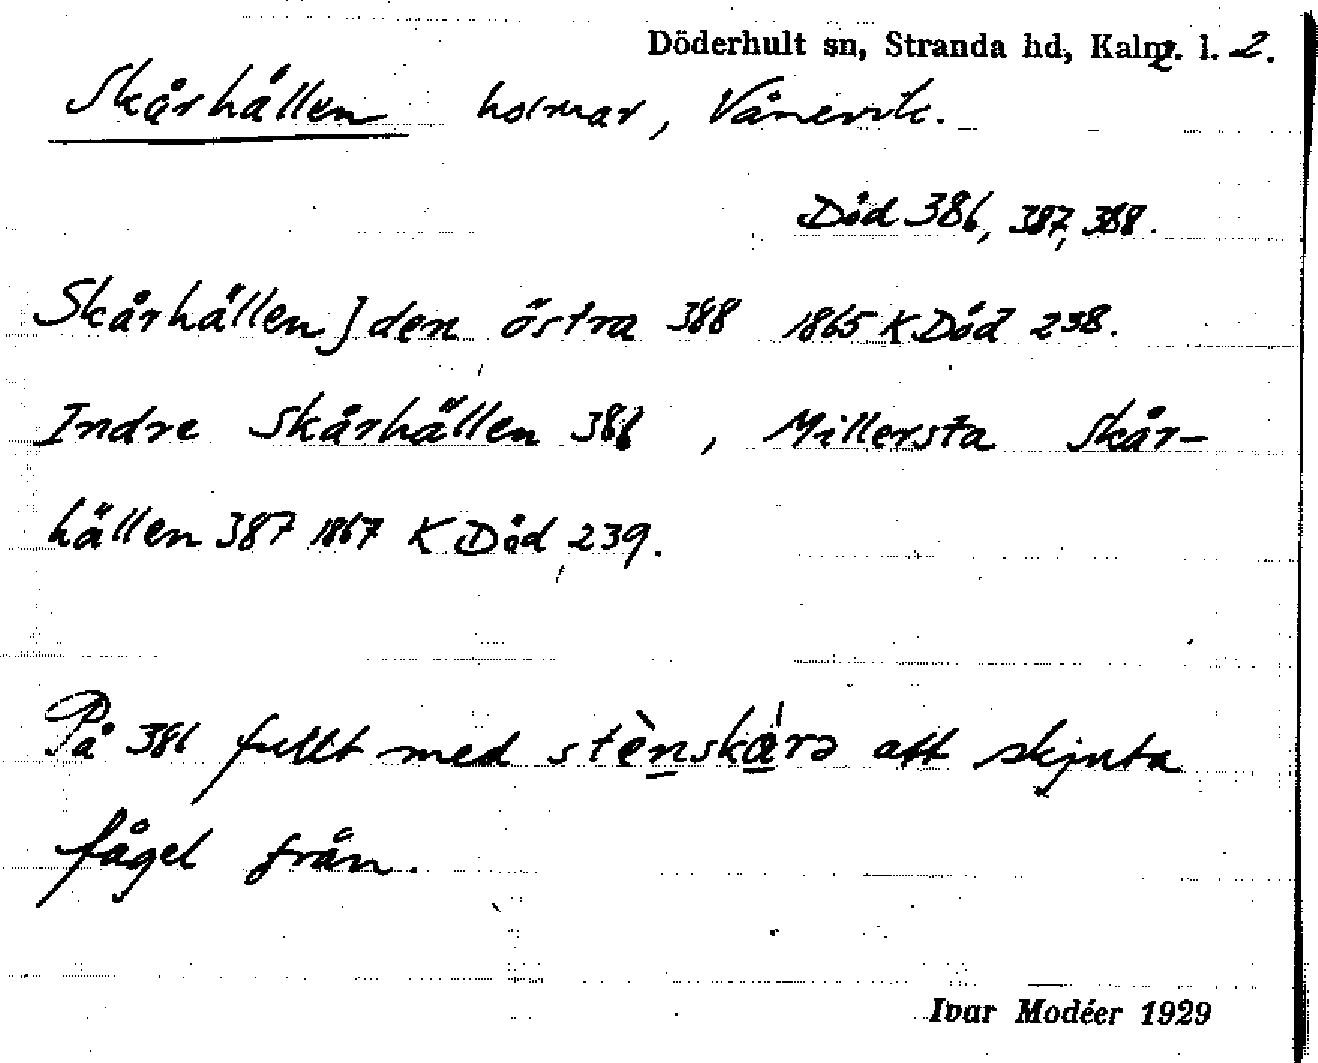 Döderhult sn, Stranda hd, Kalm. l. 2.
Skårhällen holmar, Vånevik.
Död 386, 387, 388.
Skårhällen] den östra 388 1865 K Död 238.
Indre Skårhällen 386, Millersta Skår-
hällen 387 1867 K Död 239.
På 386 fullt med stènskårə att skjuta
fågel från.
Ivar Modéer 1929